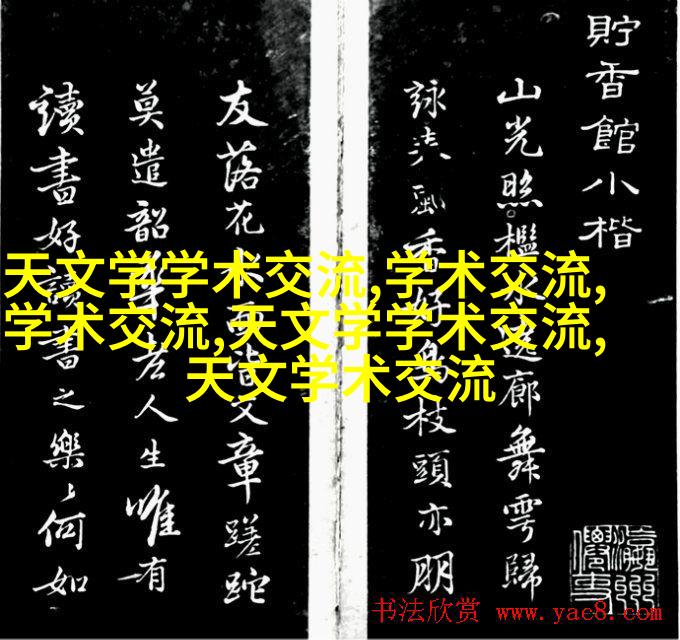 貯香館小楷
山光照檻水遶廊舞雩歸
詠春風香好鳥枝頭亦朋
友落花水面皆文章蹉跎
莫遣韶華老人生唯有
讀書好讀書之樂〻何如
天文学学术交流,学术交流,
学术交流,天文学学术交流,
天文学术交流
书法欣赏 www.yac8.com